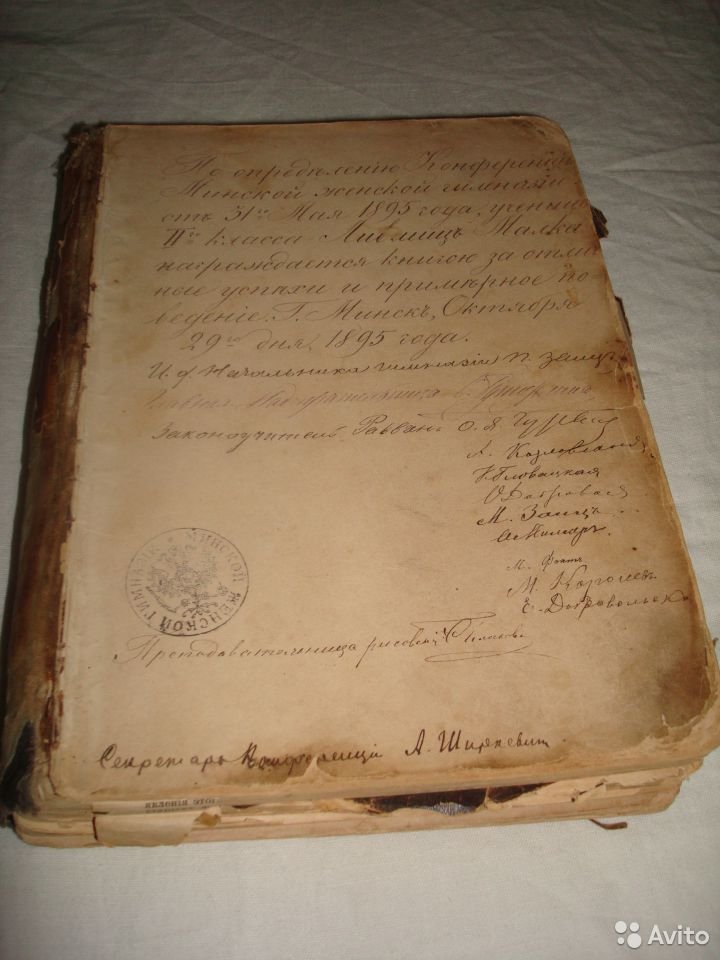 По опредѣленію Конференціи
Минской женской гимназіи
отъ 31го Мая 1895 года, ученица
IIго класса Лившицъ Малка
награждается книгою за отлич
ные успѣхи и примѣрное по
веденіе. Г. Минскъ, Октября
29го дня, 1895 года.
И. ф. Начальника гимназіи П. Заицъ
Законоучитель
О. Я.
А. Козловская
М. Заицъ
М. Фохтъ
М. Королевъ
Е. Добровольск
МИНСКОЙ ЖЕНСКОЙ ГИМНАЗІИ
Преподавательница рисован
Секретарь Конференціи А. Ширкевич
ЯВЛЕНІЯ ЭТОГ
Avito